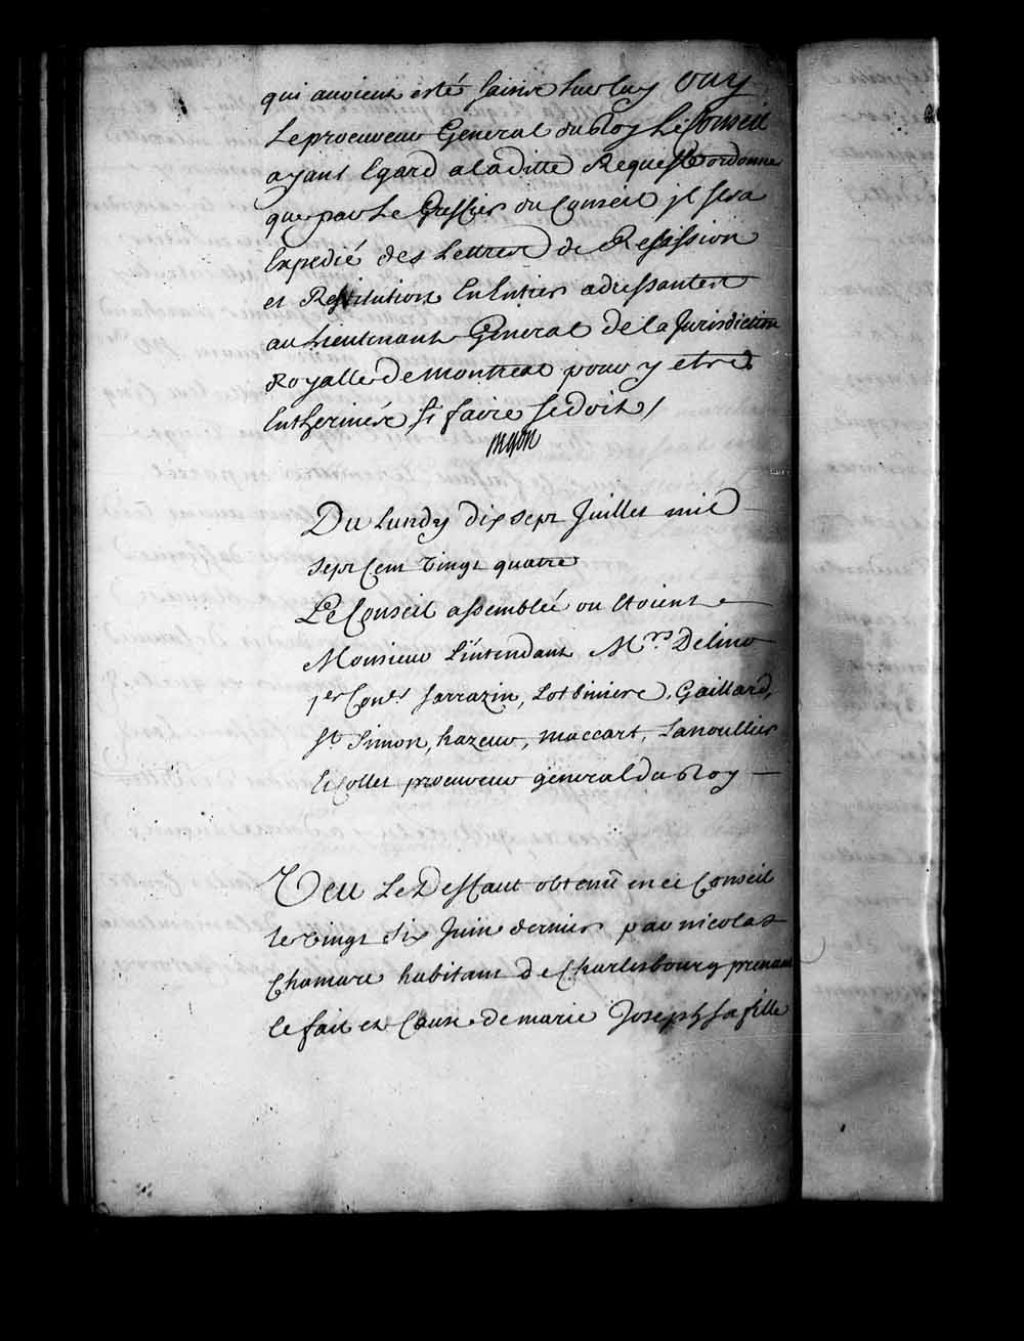 qui avoient esté saisis sur luy Ouy
Le procureur General du Roy Le Conseil
ayant Egard a la ditte Requeste ordonne
que par Le Greffier du Conseil jl sera
Expedié des Lettres de Resission
et Restitution En Entier adressantes
au Lieutenant General de la Jurisdiction
Royalle de Montreal pour y etre
Entherinée si faire se doit /
Begon
Du Lundy dix sept Juillet mil
sept Cent vingt quatre
Le Conseil assemblée ou Etoient
Monsieur L'intendant Mrs Delino
1er Coner Sarrazin, Lotbiniere, Gaillard,
St Simon, hazeur, maccart, Lanoullier
et Collet procureur general du Roy
Veu Le Deffaut obtenu en ce Conseil
le vingt six Juin dernier par nicolas
Chamare habitant de Charlesbourg prenant
le fait et Cause de marie Joseph sa fille